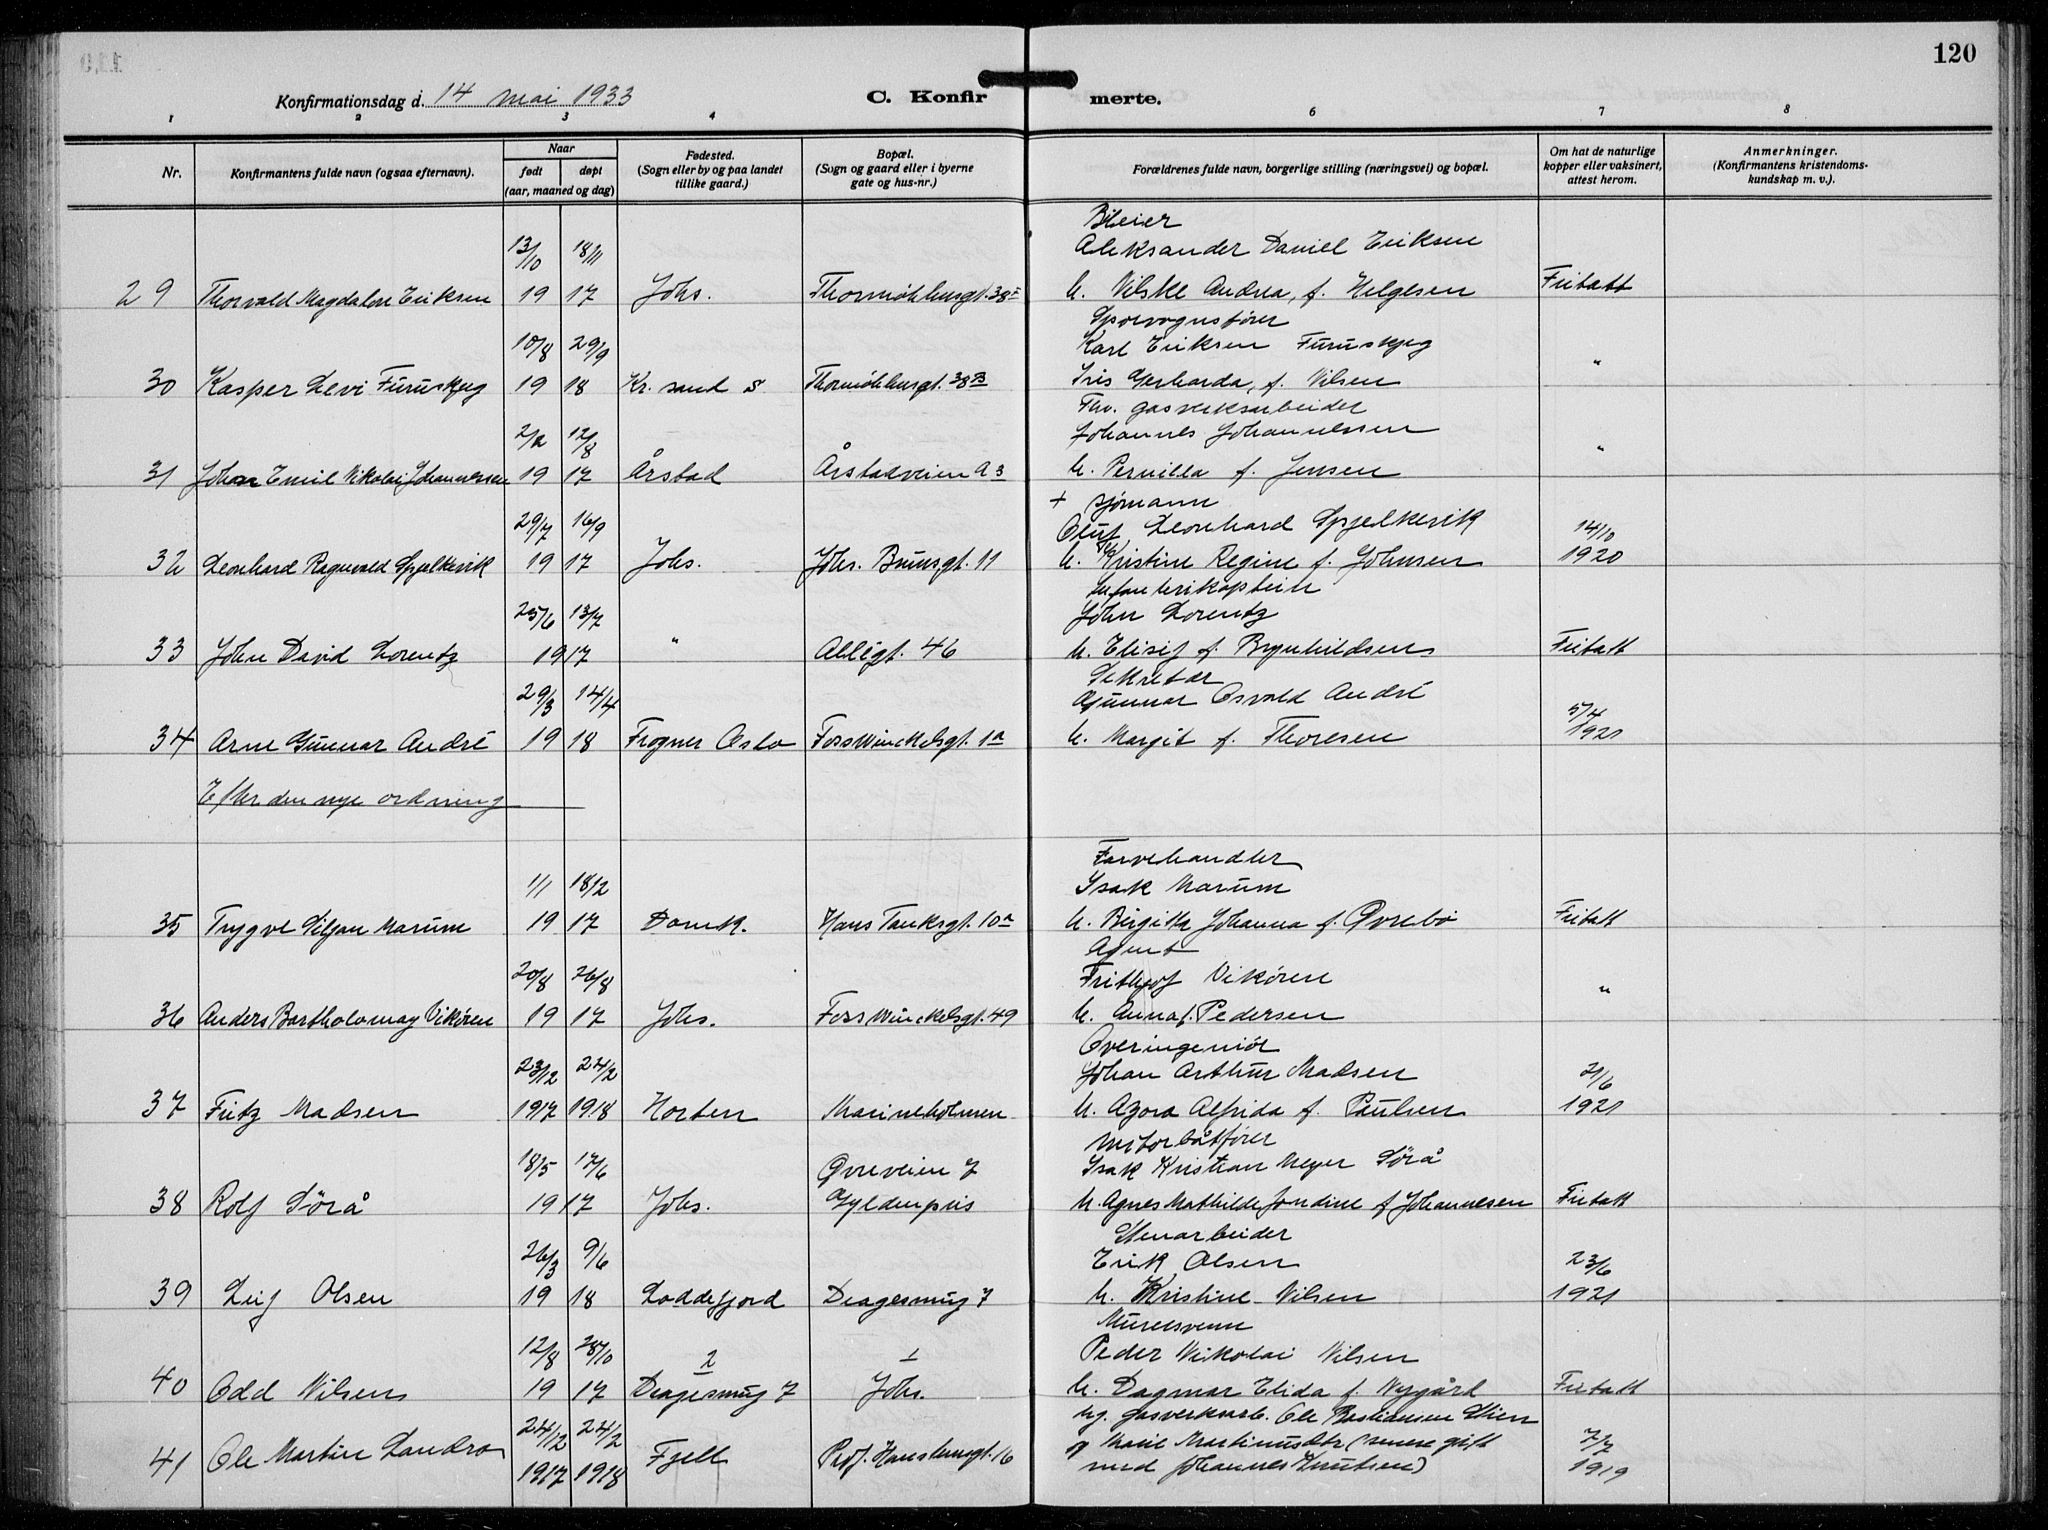 120
Konfirmationsdag d. 14 mai 1933
C. Konfirmerte.
1 2 3 4 6 7 8
Nr.
Konfirmantens fulde navn (ogsaa efternavn).
Naar
født døpt
(aar, maaned og dag)
Fødested.
(Sogn eller by og paa landet
tillike gaard.)
Bopæl.
(Sogn og gaard eller i byerne
gate og hus-nr.)
Forældrenes fulde navn, borgerlige stilling (næringsvei) og bopæl.
Om hat de naturlige
kopper eller vaksinert,
attest herom.
Anmerkninger.
(Konfirmantens kristendoms-
kundskap m. v.).
13/10 18/11 Aleksander Daniel Eriksen
29 Thorvald Magdalon Eriksen 19 17 Johs. Thormøhlensgt. 38 u. Andrea, f. Helgesen Fritatt
Sporvognsfører
10/8 29/9 Karl Eriksen Furuskjeg
30 Kasper Levi Furuskjeg 19 18 Kr. sand S. Thormøhlensgt. 38B Iris Gerharda, f. Nilsen "
Fhv. gasverksarbeider
2/2 12/8 Johannes Johannessen
31 Johan Emil Nikolai Johannessen 19 17 Årstad Årstadveien a 3 u. Pernilla f. Jensen "
+ sjømann
29/7 16/9 Oluf Leonhard Spjelkevik 14/10
32 Leonhard Ragnvald Spjelkevik 19 17 Johs. Johs. Brunsgt. 11 u. Kristine Regine f. Johnsen 1920
Infanterikaptein
25/6 13/7 John Lorentz
33 John David Lorentz 1917 " Allégt. 46 u. Elisif f. Brynhildsen Fritatt
Sekretær
29/3 14/4 Gunnar Osvald André 5/4
34 Arne Gunnar André 19 18 Frogner Oslo Fosswinckelsgt. 1a u. Margit f. Thoresen 1921
Efter den nye ordning
Farvehandler
1/1 18/2 Isak Marum
35 Trygve Siljan Marum 19 17 Domk. Hans Tanksgt. 10a u. Birgitte Johanna f. Øvrebø Fritatt
Agent
20/8 26/8 Frithjof Vikøren
36 Anders Bartholomay Vikøren 19 17 Johs. Fosswinckelsgt. 49 u. Anna f. Pedersen "
Overingeniør
23/12 24/2 Johan Arthur Madsen 21/6
37 Fritz Madsen 1917 1918 Horten Marineholmen u. Agora Alfrida f. Paulsen 1921
Motorbåtfører
18/5 17/6 Øvreveien 7 Isak Kristian Meyer Sørå
38 Rolf Sørå 19 17 Johs. Gyldenpris u. Agnes Mathilde Jondine f. Johannesen Fritatt
Stenarbeider
26/3 9/6 Erik Olsen 23/6
39 Leif Olsen 19 18 Loddefjord Dragesmug 7 u. Kristine Nilsen 1921
Murersvenn
12/8 28/10 2 1 Peder Nikolai Nilsen
40 Odd Nilsen 19 17 Dragesmug 7 Johs. u. Dagmar Elida f. Nygård Fritatt
24/12 24/2 ug. gasverksarb. Ole Bastiansen Stien
41 Ole Martin Landro 1917 1918 Fjell Prof. Hansteensgt. 16 og Marie Martinusdtr (senere gift 7/7
med Johannes Knutsen) 1919